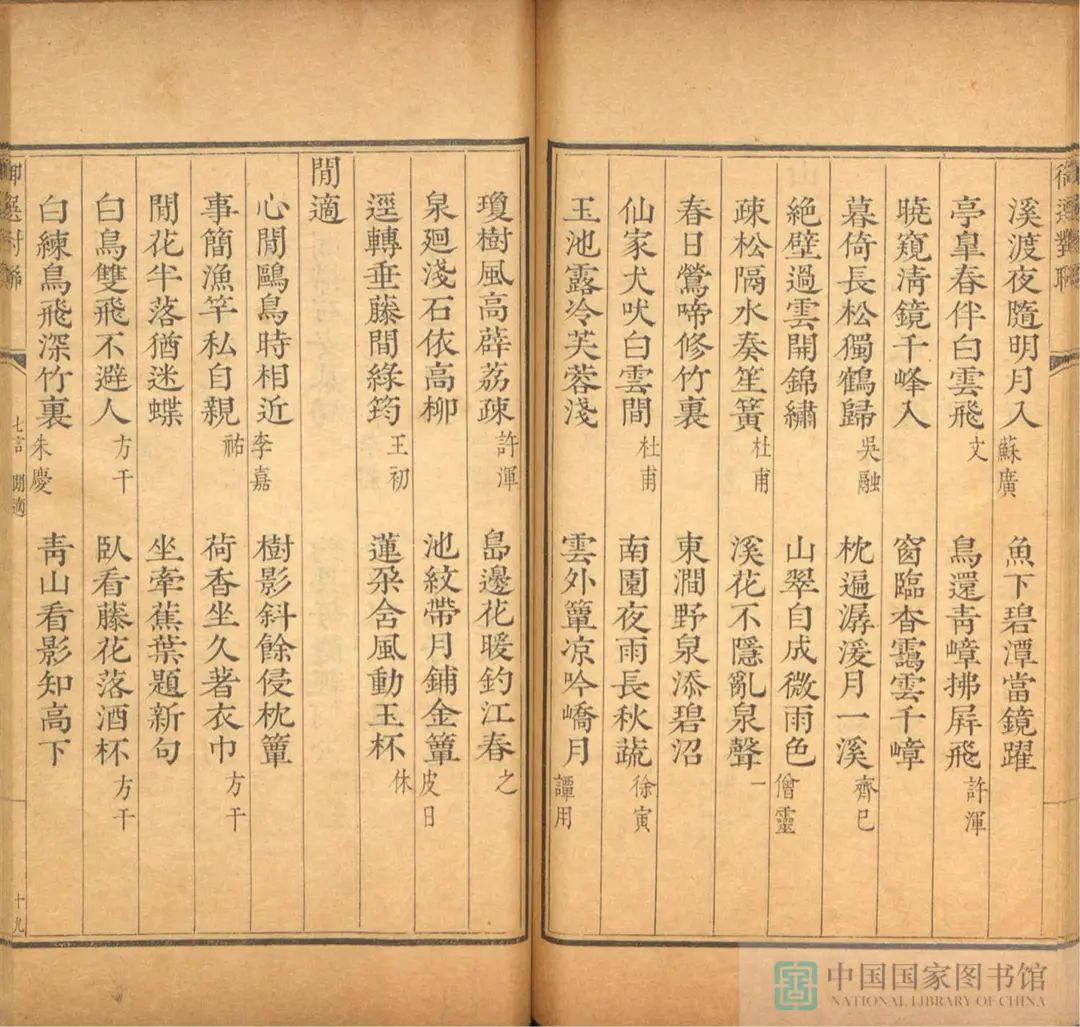 御選對聯
溪渡夜隨明月入 蘇廣 魚下碧潭當鏡躍
亭皋春伴白雲飛 文 鳥還青嶂拂屏飛 許渾
曉窺清鏡千峰入 窗臨杳靄雲千嶂
暮倚長松獨鶴歸 吳融 枕遍潺湲月一溪 齊己
絶壁過雲開錦繡 山翠自成微雨色 僧靈
疎松隔水奏笙簧 杜甫 溪花不隱亂泉聲 一
春日鶯啼修竹裏 東澗野泉添碧沼
仙家犬吠白雲間 杜甫 南園夜雨長秋蔬 徐寅
玉池露冷芙蓉淺 雲外簟凉吟嶠月 譚用
瓊樹風高薜荔疎 許渾 島邊花暖釣江春 之
泉迴淺石依高柳 池紋帶月鋪金簟 皮日
逕轉垂藤間綠筠 王初 蓮朶含風動玉杯 休
閒適
心閒鷗鳥時相近 李嘉 樹影斜餘侵枕簟
事簡漁竿私自親 祐 荷香坐久著衣巾 方干
閒花半落猶迷蝶 坐牽蕉葉題新句
白鳥雙飛不避人 方干 臥看藤花落酒杯 方干
白練鳥飛深竹裏 朱慶 青山看影知高下
御選對聯 七言 閒適 十九
中国国家图书馆
NATIONAL LIBRARY OF CHINA